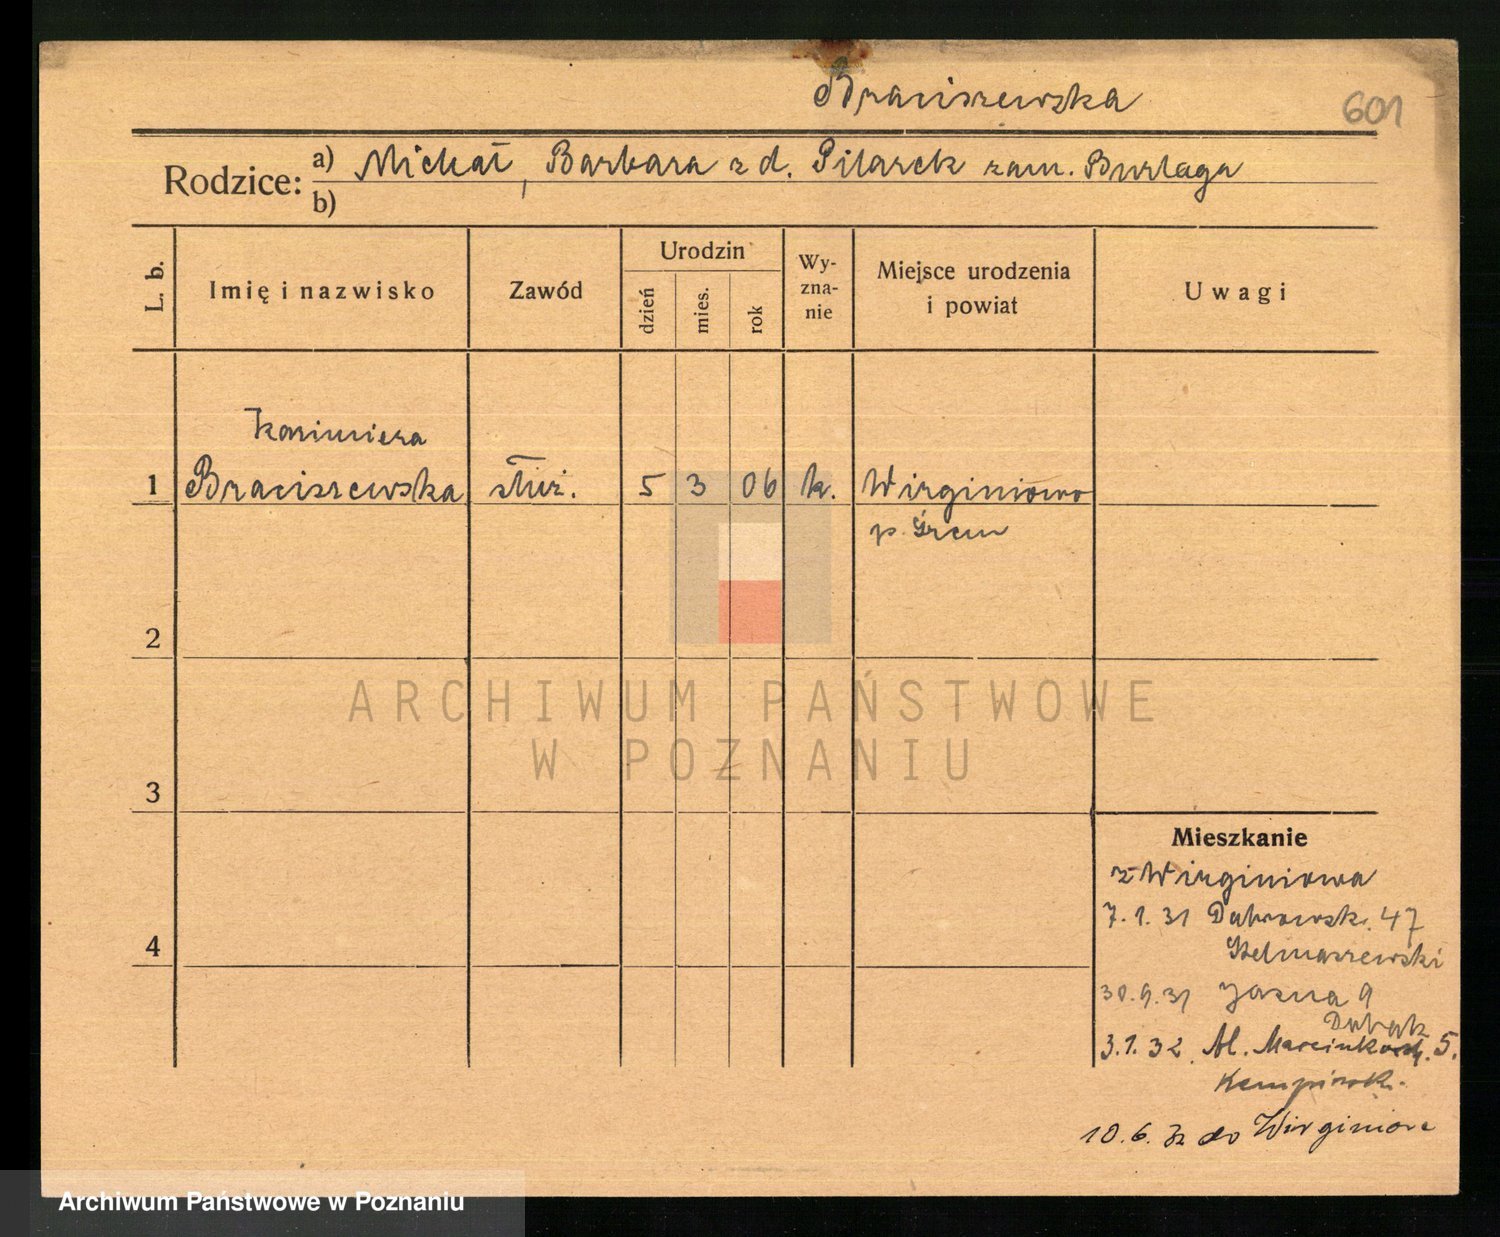 Braciszewska
601
Rodzice: a) Michał, Barbara z d. Pilarek zam. Burlaga
b)
L. b.
Imię i nazwisko
Zawód
Urodzin
dzień
mies.
rok
Wy-
zna-
nie
Miejsce urodzenia
i powiat
Uwagi
Kazimiera
1 Braciszewska służ. 5 3 06 k. Wirginiowo
p. Śrem
2
3
4
ARCHIWUM PAŃSTWOWE
W POZNANIU
Mieszkanie
z Wirginiowa
7.1.31 Dąbrowsk. 47
30.9.31 Jasna 9
3.1.32 Al. Marcinkowsk. 5.
Kempińsk.
10.6.32 do Wirginiowa
Archiwum Państwowe w Poznaniu